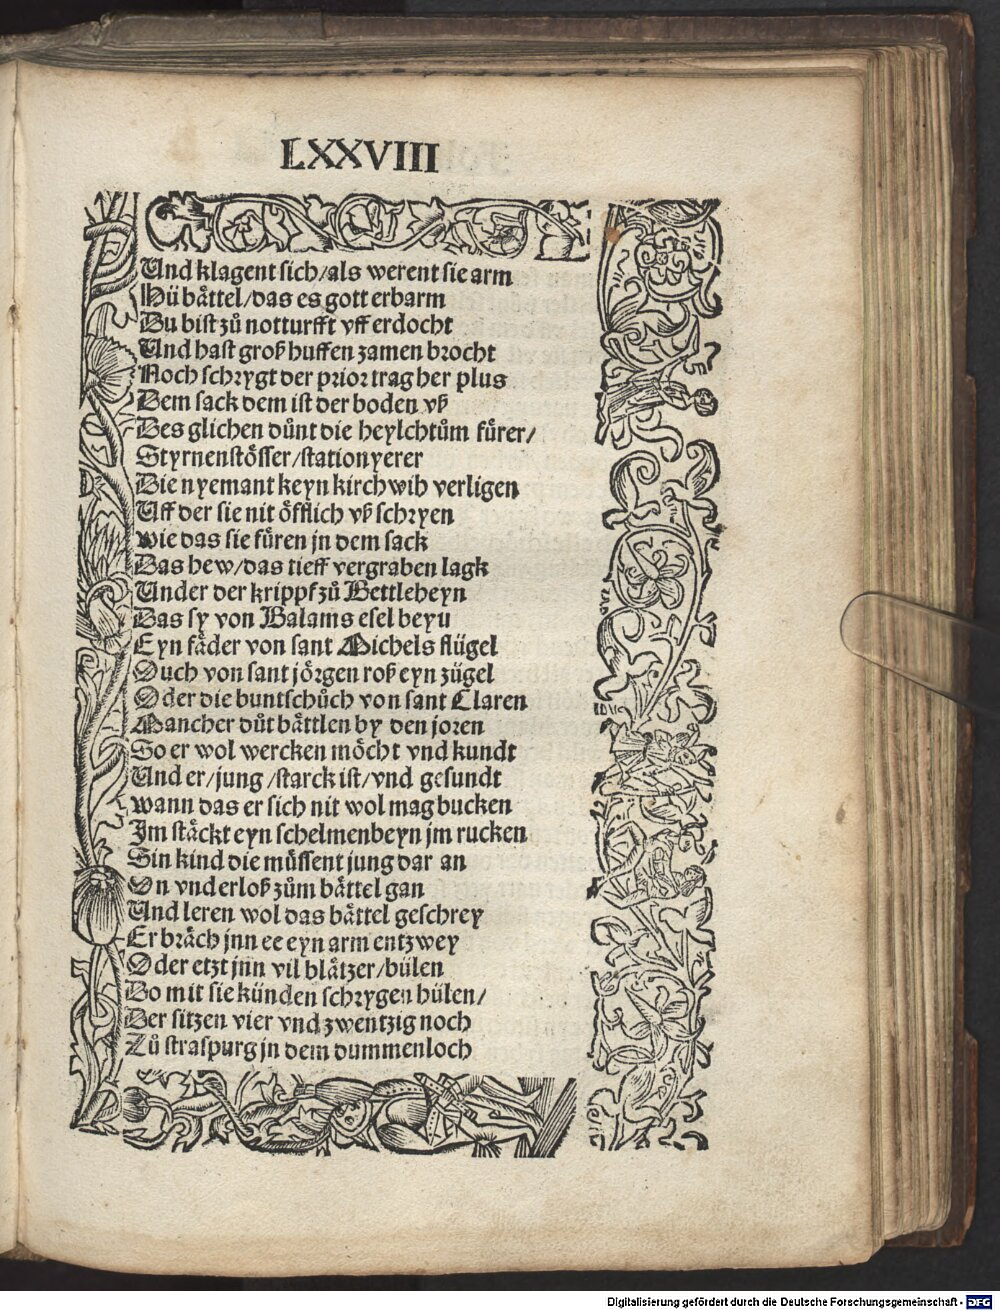 LXXVIII
Und klagent sich/als werent sie arm
Hü bättel/das es gott erbarm
Du bist zů notturfft vff erdocht
Und hast groß huffen zamen brocht
Noch schrygt der prior trag her plus
Dem sack dem ist der boden vß
Des glichen důnt die heylchtům fürer/
Styrnenstösser/stationyerer
Die nyemant keyn kirchwih verligen
Uff der sie nit öfflich vß schryen
wie das sie füren jn dem sack
Das hew/das tieff vergraben lagk
Under der krippf zů Bettleheyn
Das sy von Balams esel beyn
Eyn fäder von sant Michels flügel
Ouch von sant jörgen roß eyn zügel
Oder die buntschůch von sant Claren
Mancher důt bättlen by den joren
So er wol wercken möcht vnd kundt
Und er/jung/starck ist/vnd gesundt
wann das er sich nit wol mag bucken
Im stäckt eyn schelmenbeyn jm rucken
Sin kind die müssent jung dar an
On vnderloß zům bättel gan
Und leren wol das bättel geschrey
Er bräch jnn ee eyn arm entzwey
Oder etzt jnn vil blätzer/bülen
Do mit sie künden schrygen hülen/
Der sitzen vier vnd zwentzig noch
Zů straspurg jn dem dummenloch
Digitalisierung gefördert durch die Deutsche Forschungsgemeinschaft - DFG